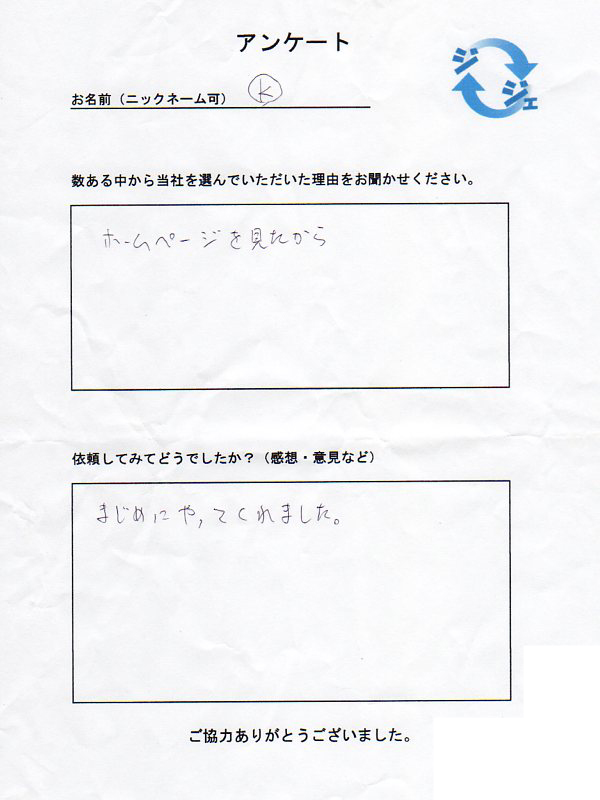 アンケート
ジジェ
お名前（ニックネーム可） K
数ある中から当社を選んでいただいた理由をお聞かせください。
ホームページを見たから
依頼してみてどうでしたか？（感想・意見など）
まじめにやってくれました。
ご協力ありがとうございました。